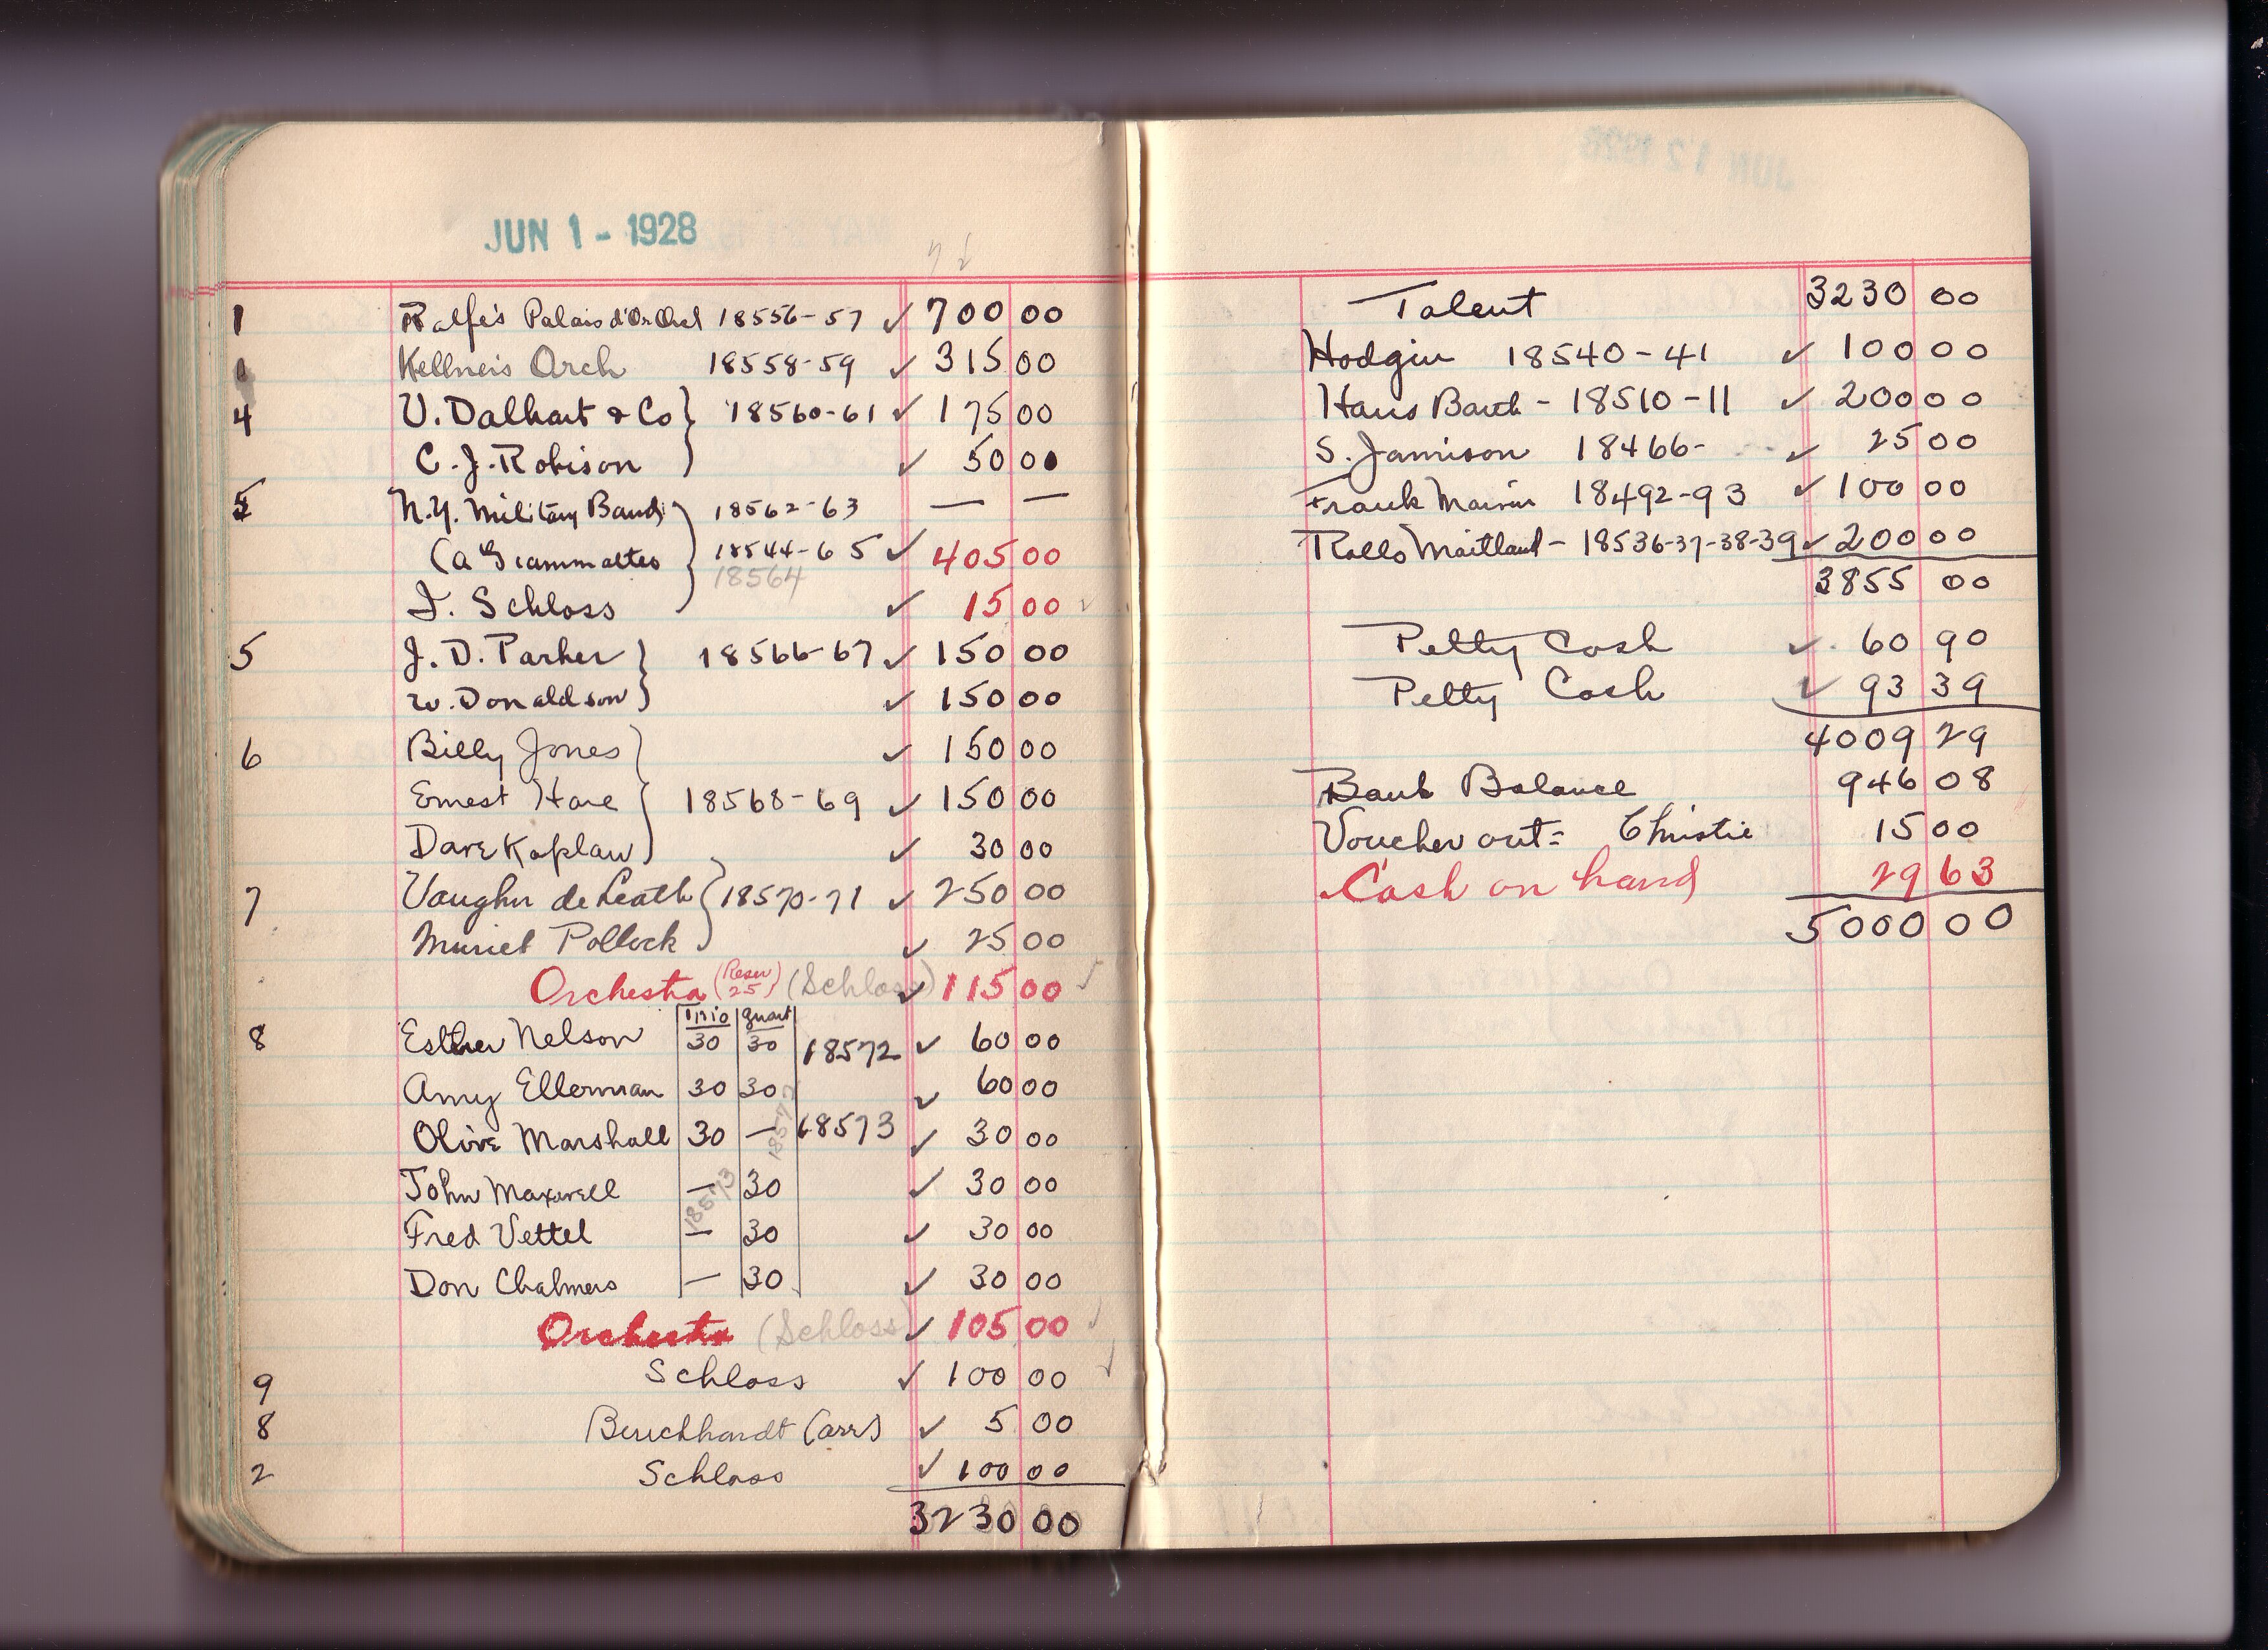 JUN 1 - 1928
1 Rolfe's Palais d'Or Orch 18556-57 ✓ 700 00
Kellner's Orch 18558-59 ✓ 315 00
4 V. Dalhart & Co } 18560-61 ✓ 175 00
C. J. Robison ✓ 50 00
5 N.Y. Military Band 18562-63 — —
(a Giammatteo 18544-65 ✓ 405 00
18564
I. Schloss ✓ 15 00
5 J. D. Parker } 18566-67 ✓ 150 00
W. Donaldson ✓ 150 00
6 Billy Jones ✓ 150 00
Ernest Hare } 18568-69 ✓ 150 00
Dave Kaplan ✓ 30 00
7 Vaughn de Leath } 18570-71 ✓ 250 00
Muriel Pollock ✓ 25 00
Orchestra (Reser 25) (Schloss) ✓ 115 00
Trio Quart
8 Esther Nelson 30 30 18572 ✓ 60 00
Amy Ellerman 30 30 ✓ 60 00
18572
Olive Marshall 30 — 18573 ✓ 30 00
John Maxwell — 30 ✓ 30 00
18573
Fred Vettel — 30 ✓ 30 00
Don Chalmers — 30 ✓ 30 00
Orchestra (Schloss) ✓ 105 00
9 Schloss ✓ 100 00
8 Beuchhardt (arr) ✓ 5 00
2 Schloss ✓ 100 00
3230 00
JUN 12 1928
Talent 3230 00
Hodgin 18540-41 ✓ 100 00
Hans Barth - 18510-11 ✓ 200 00
S. Jamison 18466- ✓ 25 00
Frank Marvin 18492-93 ✓ 100 00
Rollo Maitland - 18536-37-38-39 ✓ 200 00
3855 00
Petty Cash ✓ 60 90
Petty Cash ✓ 93 39
4009 29
Bank Balance 946 08
Voucher out = Christie 15 00
Cash on hand 29 63
5000 00